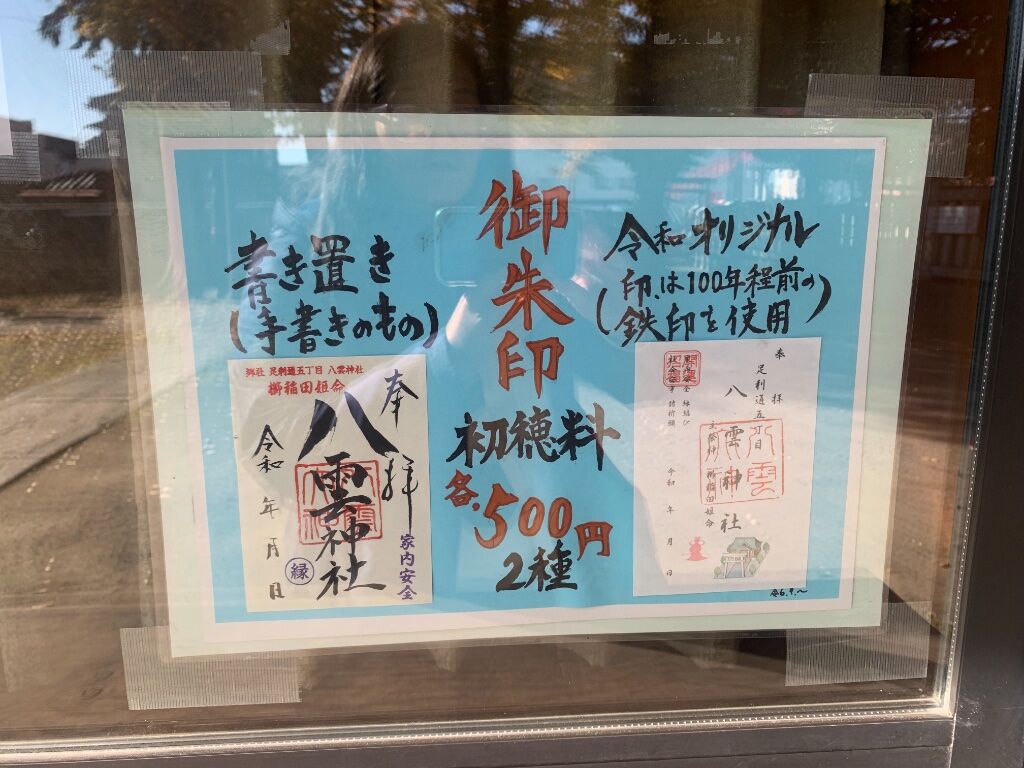 御朱印
初穂料
各500円
2種
書き置き
(手書きのもの)
郷社 足利通五丁目 八雲神社
櫛稲田姫命
奉拝
八雲神社
令和 年 月 日
家内安全
縁
令和オリジナル
(印は100年程前の
鉄印を使用)
奉拝
足利通五丁目
八雲神社
令和 年 月 日